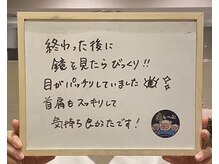 終わった後に
鏡を見たらびっくり!!
目がパッチリしていました
首肩もスッキリして
気持ち良かったです!